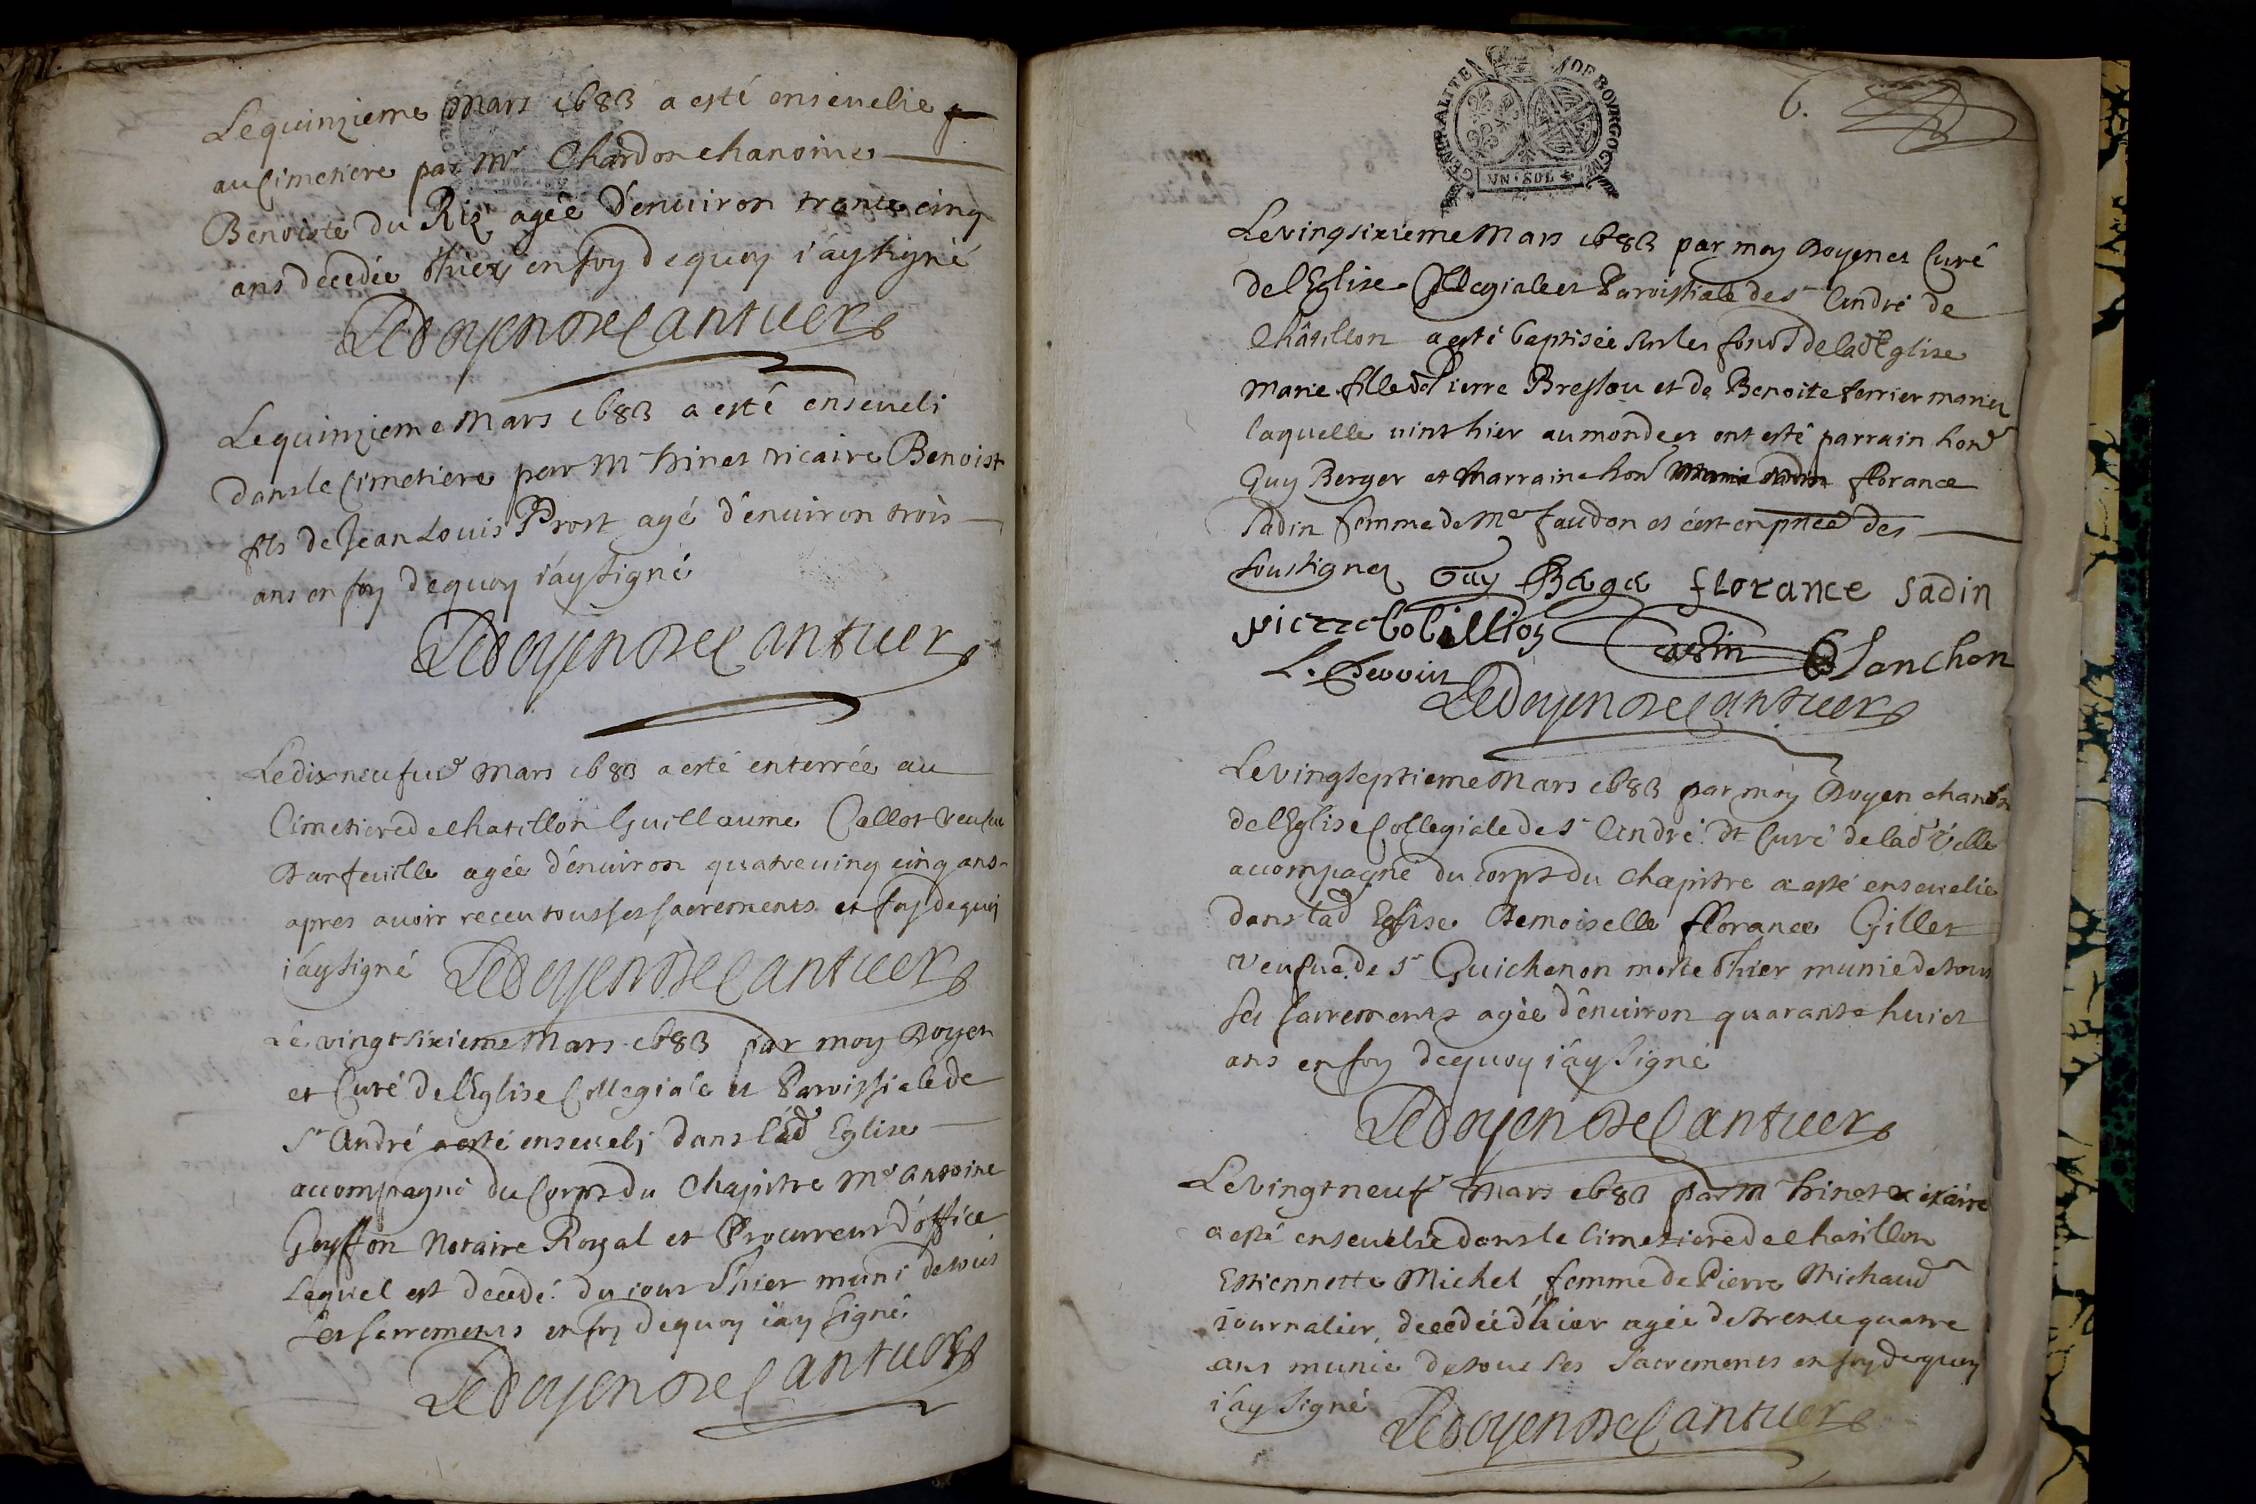 Le quinzieme Mars 1683 a esté enseuelie
au Cimetiere par Mr Chardon chanoine
Benoiste du Ris agée d'enuiron trente cinq
ans decedée d'hier en foy dequoy i'ay signé
Le doyen de Cantuer
Le quinzieme Mars 1683 a esté enseueli
dans le Cimetiere par Mr vicaire Benoist
fils de Jean Louis Prost agé d'enuiron trois
ans en foy dequoy i'ay signé
Le doyen de Cantuer
Le dixneufue Mars 1683 a esté enterrée au
Cimetiere de chatillon Guillaume Callot veufue
Darfeuille agée d'enuiron quatreuing cinq ans
apres auoir receu tous ses sacrements et foy dequoy
i'ay signé Le doyen de Cantuer
Le vingtsixieme Mars 1683 par moy Doyen
et Curé de l'Eglise Collegiale et Paroissiale de
St André a esté enseueli dans lad Eglise
accompagné du Corps du Chapitre Me Antoine
Goyffon Notaire Royal et Procureur d'office
Lequel est decedé du iour d'hier muni de tous
les sacrements en foy dequoy i'ay signé
Le doyen de Cantuer
GENERALITE DE BOVRGOGNE
VN·SOL
6.
Le vingsixieme Mars 1683 par moy Doyen et Curé
de l'Eglise Collegiale et Paroissiale de St André de
Châtillon a esté baptisée sur les fonds de lad Eglise
Marie fille de Pierre Bressou et de Benoite ferrier mariez
laquelle uint hier au monde et ont esté parrain hond
Guy Berger et marraine hon florance
Sadin femme de Me faudon et c'est en pñce des
soussignez Guy florance Sadin
pierre Cobillion
Blanchon
Le doyen de Cantuer
Le vingseptieme Mars 1683 par moy Doyen chanoi
de l'Eglise Collegiale de St André et Curé de lad Ville
accompagné du corps du Chapitre a esté enseuelie
dans lad Eglise Demoiselle fflorance Gillet
veufue de Sr Guichenon morte d'hier munie de tous
ses sacrements agée d'enuiron quarante huict
ans en foy dequoy i'ay signé
Le doyen de Cantuer
Le vingt neufe Mars 1683 par M vicaire
a esté enseuelie dans le Cimetiere de chatillon
Estiennette Michel femme de Pierre Michaud
iournalier, decedée d'hier agée de trente quatre
ans munie de tous les sacrements en foy dequoy
i'ay signé Le doyen de Cantuer